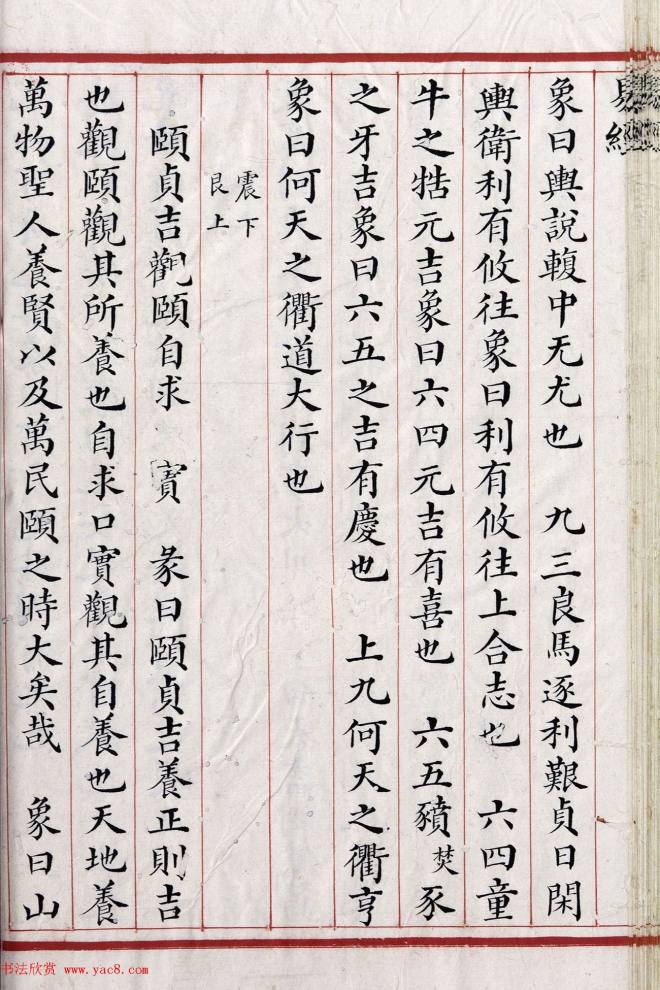 易經
象曰輿說輹中无尤也　九三良馬逐利艱貞日閑
輿衛利有攸往象曰利有攸往上合志也　六四童
牛之牿元吉象曰六四元吉有喜也　六五豶焚豕
之牙吉象曰六五之吉有慶也　上九何天之衢亨
象曰何天之衢道大行也
震下
艮上
頤貞吉觀頤自求　實　彖曰頤貞吉養正則吉
也觀頤觀其所養也自求口實觀其自養也天地養
萬物聖人養賢以及萬民頤之時大矣哉　象曰山
书法欣赏 www.yac8.com